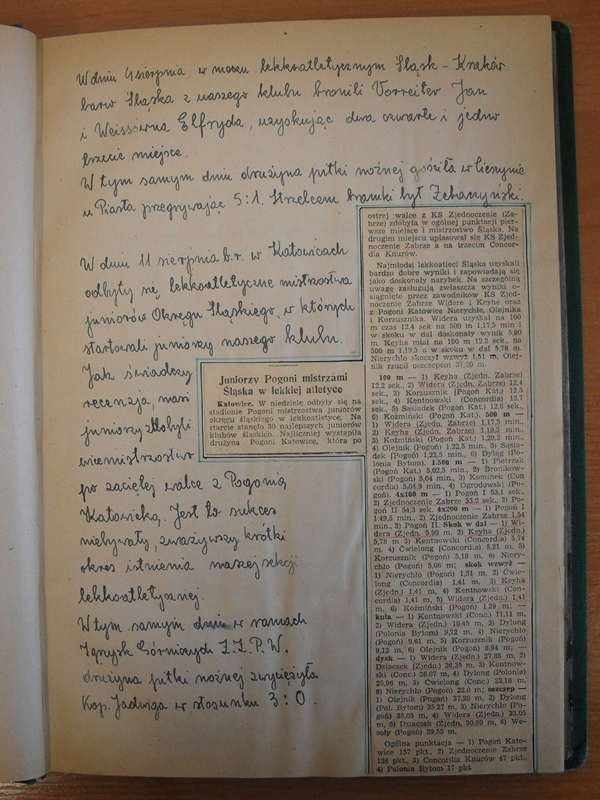 W dniu 4 sierpnia w meczu lekkoatletycznym Śląsk - Kraków
barw Śląska z naszego klubu bronili Vorreiter Jan
i Weissówna Elfryda, uzyskując dwa czwarte i jedno
trzecie miejsce.
W tym samym dniu drużyna piłki nożnej gościła w Cieszynie
u Piasta przegrywając 5:1. Strzelcem bramki był Zebaczyński.
W dniu 11 sierpnia b.r. w Katowicach
odbyły się lekkoatletyczne mistrzostwa
juniorów Okręgu Śląskiego, w których
startowali juniorzy naszego klubu.
Jak świadczy
recenzja, nasi
juniorzy zdobyli
wicemistrzostwo
po zaciętej walce z Pogonią
Katowicką. Jest to sukces
niebywały, zważywszy krótki
okres istnienia naszej sekcji
lekkoatletycznej.
W tym samym dniu w ramach
Igrzysk Górniczych Z.Z.P.W.
drużyna piłki nożnej zwyciężyła
Kop. Jadwiga w stosunku 3:0.
Juniorzy Pogoni mistrzami
Śląska w lekkiej atletyce
Katowice. W niedzielę odbyły się na
stadionie Pogoni mistrzostwa juniorów
okręgu śląskiego w lekkoatletyce. Na
starcie stanęło 30 najlepszych juniorów
klubów śląskich. Najliczniej wystąpiła
drużyna Pogoni Katowice, która po
ostrej walce z KS Zjednoczenie (Za-
brze) zdobyła w ogólnej punktacji pier-
wsze miejsce i mistrzostwo Śląska. Na
drugim miejscu uplasował się KS Zjed-
noczenie Zabrze a na trzecim Concor-
dia Knurów.
Najmłodsi lekkoatleci Śląska uzyskali
bardzo dobre wyniki i zapowiadają się
jako doskonały narybek. Na szczególną
uwagę zasługują zwłaszcza wyniki o-
siągnięte przez zawodników KS Zjed-
noczenie Zabrze Widerę i Keyhę oraz
z Pogoni Katowice Nierychło, Olejnika
i Korzusznika. Widera uzyskał na 100
m czas 12,4 sek, na 500 m 1,17,5 min i
w skoku w dal doskonały wynik 5,90
m. Keyha miał na 100 m 12,2 sek., na
500 m 1,19,5 a w skoku w dal 5,78 m.
Nierychło skoczył wzwyż 1,51 m, Olej-
nik rzucił oszczepem 37,20 m.
100 m — 1) Keyha (Zjedn. Zabrze)
12,2 sek., 2) Widera (Zjedn. Zabrze) 12,4
sek., 3) Korzusznik (Pogoń Kat.) 12,5
sek., 4) Kentnowski (Concordia) 12,7
sek., 5) Sąsiadek (Pogoń Kat.) 12,8 sek.,
6) Koźmiński (Pogoń Kat.) 500 m —
1) Widera (Zjedn. Zabrze) 1,17,5 min.,
2) Keyha (Zjedn. Zabrze) 1,19,5 min.,
3) Koźmiński (Pogoń Kat.) 1,20,2 min.,
4) Olejnik (Pogoń) 1,22,5 min., 5) Sąsia-
dek (Pogoń) 1,22,5 min., 6) Dyląg (Po-
lonia Bytom). 1.500 m — 1) Pietrzak
(Pogoń Kat.) 5,02,5 min., 2) Bronikow-
ski (Pogoń) 5,04 min., 3) Kominek (Con
cordia) 5,04,9 min., 4) Ogrodowski (Po-
goń). 4x100 m — 1) Pogoń I 53,1 sek.,
2) Zjednoczenie Zabrze 53,2 sek., 3) Po-
goń II 54,3 sek. 4x200 m — 1) Pogoń I
1,49,5 min., 2) Zjednoczenie Zabrze 1,54
min., 3) Pogoń II. Skok w dal — 1) Wi-
dera (Zjedn. 5,90 m, 2) Keyha (Zjedn.)
5,78 m 3) Kentnowski (Concordia) 5,74
m, 4) Cwielong (Concordia) 5,21 m, 5)
Korzusznik (Pogoń) 5,18 m, 6) Niery-
chło (Pogoń) 5,08 m; skok wzwyż —
1) Nierychło (Pogoń) 1,51 m, 2) Cwie-
long (Concordia) 1,41 m, 3) Keyha
(Zjedn.) 1,41 m, 4) Kentnowski (Con-
cordia) 1,41 m, 5) Widera (Zjedn.) 1,41
m, 6) Koźmiński (Pogoń) 1,29 m;
kula — 1) Kentnowski (Conc.) 11,11 m,
2) Widera (Zjedn.) 10,45 m, 3) Dylong
(Polonia Bytom) 9,72 m, 4) Nierychło
(Pogoń) 9,61 m, 5) Korzusznik (Pogoń)
9,12 m, 6) Olejnik (Pogoń) 8,94 m;
dysk — 1) Widera (Zjedn.) 27,83 m, 2)
Dziaczek (Zjedn.) 26,35 m, 3) Kentnow-
ski (Conc.) 26,07 m, 4) Dylong (Polonia)
25,96 m, 5) Cwielong (Conc.) 23,16 m,
6) Nierychło (Pogoń) 22,0 m; oszczep —
1) Olejnik (Pogoń) 37,20 m, 2) Dylong
(Pol. Bytom) 35,27 m, 3) Nierychło (Po-
goń) 35,05 m, 4) Widera (Zjedn.) 33,05
m, 5) Dziaczek (Zjedn. 30,80 m, 6) We-
soły (Pogoń) 29,55 m.
Ogólna punktacja — 1) Pogoń Kato-
wice 157 pkt., 2) Zjednoczenie Zabrze
126 pkt., 3) Concordia Knurów 47 pkt.,
4) Polonia Bytom 17 pkt